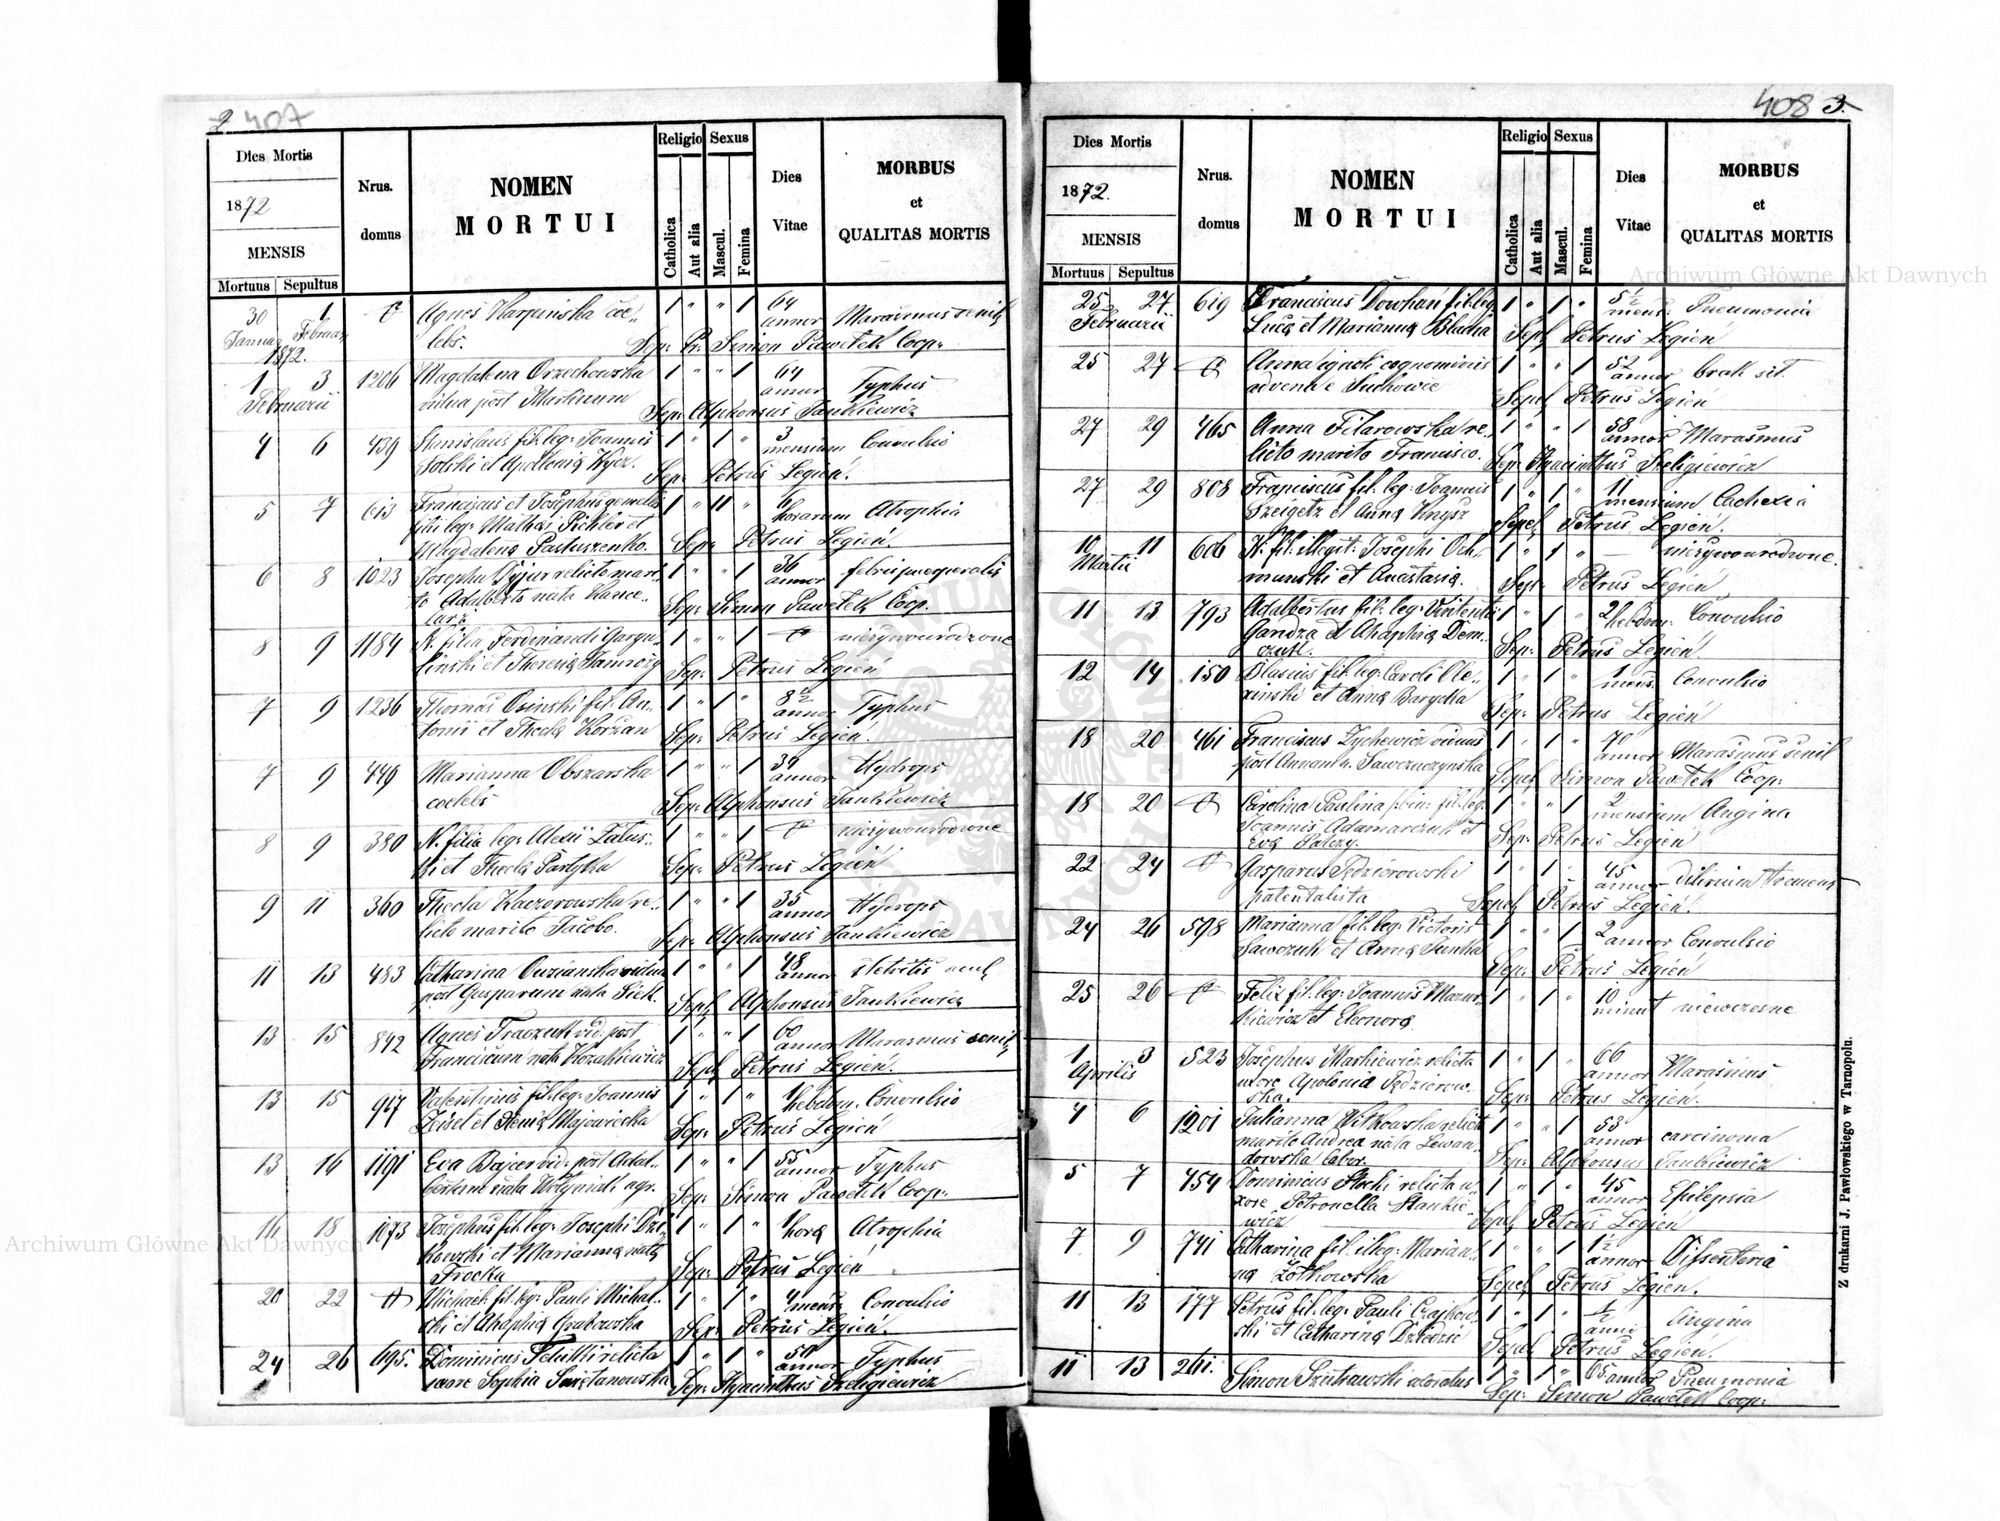 2 407
Dies Mortis
1872
MENSIS
Mortuus Sepultus
Nrus. domus
NOMEN MORTUI
Religio
Catholica
Aut alia
Sexus
Mascul.
Femina
Dies Vitae
MORBUS et QUALITAS MORTIS
30 Januar 1 Februar 1872. Agnes Karpinska coe-
lebs. 1 " " 1 64 annor Marasmus senil
Sep: Pr: Simon Pawełek Coop:
1 3 Februarii 1206 Magdalena Orzechowska
vidua post Martinum 1 " " 1 64 annor Typhus
Sep: Alphonsus Jankiewicz
4 6 439 Stanislaus fil: leg: Joannis
Solski et Apollonia 1 " 1 " 3 mensium Convulsio
Sep: Petrus Legień.
5 7 613 Franciscus et Josephus gemelli
filii leg: Mathei Pichler et
Magdalena Pastuszenko. 1 " 11 " 6 horarum Atrophia
Sep: Petrus Legień
6 8 1023 relicto mari-
to Adalberto nata 1 " " 1 36 annor febris puerperalis
Sep: Simon Pawełek Coop.
8 9 1184 N. filia Ferdinandi
et Theresia 1 " " 1 nieżywourodzone
Sep: Petrus Legień
7 9 1236 Thomas Osinski fil: An-
tonii et Thecla Korzan 1 " 1 " 8 1/2 annor Typhus
Sep: Petrus Legień.
7 9 449 Marianna Obszarska
coelebs 1 " " 1 39 annor Hydrops
Sep: Alphonsus Jankiewicz
8 9 380 N. filia leg: Alexii
et Thecla Partyka 1 " " 1 nieżywourodzone
Sep: Petrus Legień
9 11 360 Thecla Kaczorowska re-
licto marito Jacobo. 1 " " 1 35 annor Hydrops
Sep: Alphonsus Jankiewicz
11 13 483 Catharina vidua
post Gasparum nata 1 " " 1 48 annor
Sep: Alphonsus Jankiewicz
13 15 842 Agnes Traczuk vid: post
Franciscum nata Kozakiewicz 1 " " 1 60 annor Marasmus senil
Sep: Petrus Legień.
13 15 917 Valentinus fil: leg: Joannis
et Xenia Majewiecka 1 " 1 " 1 hebdom. Convulsio
Sep: Petrus Legień
13 16 1191 Eva Bajcer vid: post Adal-
bertum nata agr. 1 " " 1 55 annor Typhus
Sep: Simon Pawełek Coop:
16 18 1073 Josephus fil: leg: Josephi
et Marianna nata
Trocka 1 " 1 " 1 hora Atrophia
Sep: Petrus Legień
20 22 Michael fil: leg: Pauli Michal-
ski et Ahaphia Grabowska 1 " 1 " 4 mens: Convulsio
Sep: Petrus Legień.
24 26 695. Dominicus relicta
uxore Sophia Smietanowska 1 " 1 " 50 annor Typhus
Sep: Hyacinthus Szeligiewicz
408 3.
Dies Mortis
1872.
MENSIS
Mortuus Sepultus
Nrus. domus
NOMEN MORTUI
Religio
Catholica
Aut alia
Sexus
Mascul.
Femina
Dies Vitae
MORBUS et QUALITAS MORTIS
25 27 Februarii 619 Franciscus Dowhań fil: leg:
Luca et Marianna Blacha 1 " 1 " 5 1/2 mens: Pneumonia
Sepel Petrus Legień
25 27 Anna ignoti cognominis
advena e Suchowce 1 " " 1 52 annor brak sił.
Sepel Petrus Legień
27 29 465 Anna Filarowska re-
licto marito Francisco. 1 " " 1 58 annor Marasmus
Sep: Hyacinthus Szeligiewicz
27 29 808 Franciscus fil: leg: Joannis
et Anna Knysz 1 " 1 " 11 mensium Cachexia
Sepel Petrus Legień.
10 11 Martii 606 N. fil: illegit: Josephi Och-
manski et Anastasia. 1 " 1 " nieżywourodzone.
Sep: Petrus Legień
11 13 793 Adalbertus fil: leg: Vincentii
Gandza et Ahaphia Dem-
czuk. 1 " 1 " 2 hebdom: Convulsio
Sep: Petrus Legień
12 14 150 Blasius fil: leg: Caroli
et Anna Barycka 1 " 1 " 1 mens: Convulsio
Sep: Petrus Legień
18 20 461 Franciscus Zychewicz viduus
post Annam n. Sawczuczynska 1 " 1 " 70 annor Marasmus senil
Sepel Simon Pawełek Coop:
18 20 Carolina Paulina fil: leg:
Joannis Adamarczuk et
Eva 1 " " 1 2 mensium Angina
Sep: Petrus Legień
22 24 Gasparus Sędziorowski
patentalista 1 " 1 " 45 annor Dilirium tremens
Sepel Petrus Legień.
24 26 598 Marianna fil: leg: Victoris
Sawczuk et Anna 1 " " 1 2 annor Convulsio
Sep: Petrus Legień
25 26 Felix fil: leg: Joannis Mazur-
kiewicz et Eleonora 1 " 1 " 10 minut niewczesne
1 3 Aprilis 523 Josephus Markiewicz relicta
uxore Apolonia Sędziorow-
ska. 1 " 1 " 66 annor Marasmus
Sep: Petrus Legień.
4 6 1201 Julianna Witkowska relicto
marito Andrea nata Lewan-
dowska labor. 1 " " 1 53 annor carcinoma
Sep: Alphonsus Jankiewicz
5 7 454 Dominicus relicta u-
xore Petronella Stankie-
wicz 1 " 1 " 45 annor Epilepsia
Sepel Petrus Legień
7 9 741 Catharina fil: illeg: Marian-
na Żółkowska 1 " " 1 1 1/2 annor Difsenteria
Sepel Petrus Legień.
11 13 177 Petrus fil: leg: Pauli Czajkow-
ski et Catharina Dziedzic 1 " 1 " 1/2 anni Angina
Sepel Petrus Legień.
11 13 261. Simon uxoratus 1 " 1 " 65 annor Pneumonia
Sep: Simon Pawełek Coop:
Z drukarni J. Pawłowskiego w Tarnopolu.
Archiwum Główne Akt Dawnych
Archiwum Główne Akt Dawnych
ARCHIWUM GŁÓWNE AKT DAWNYCH